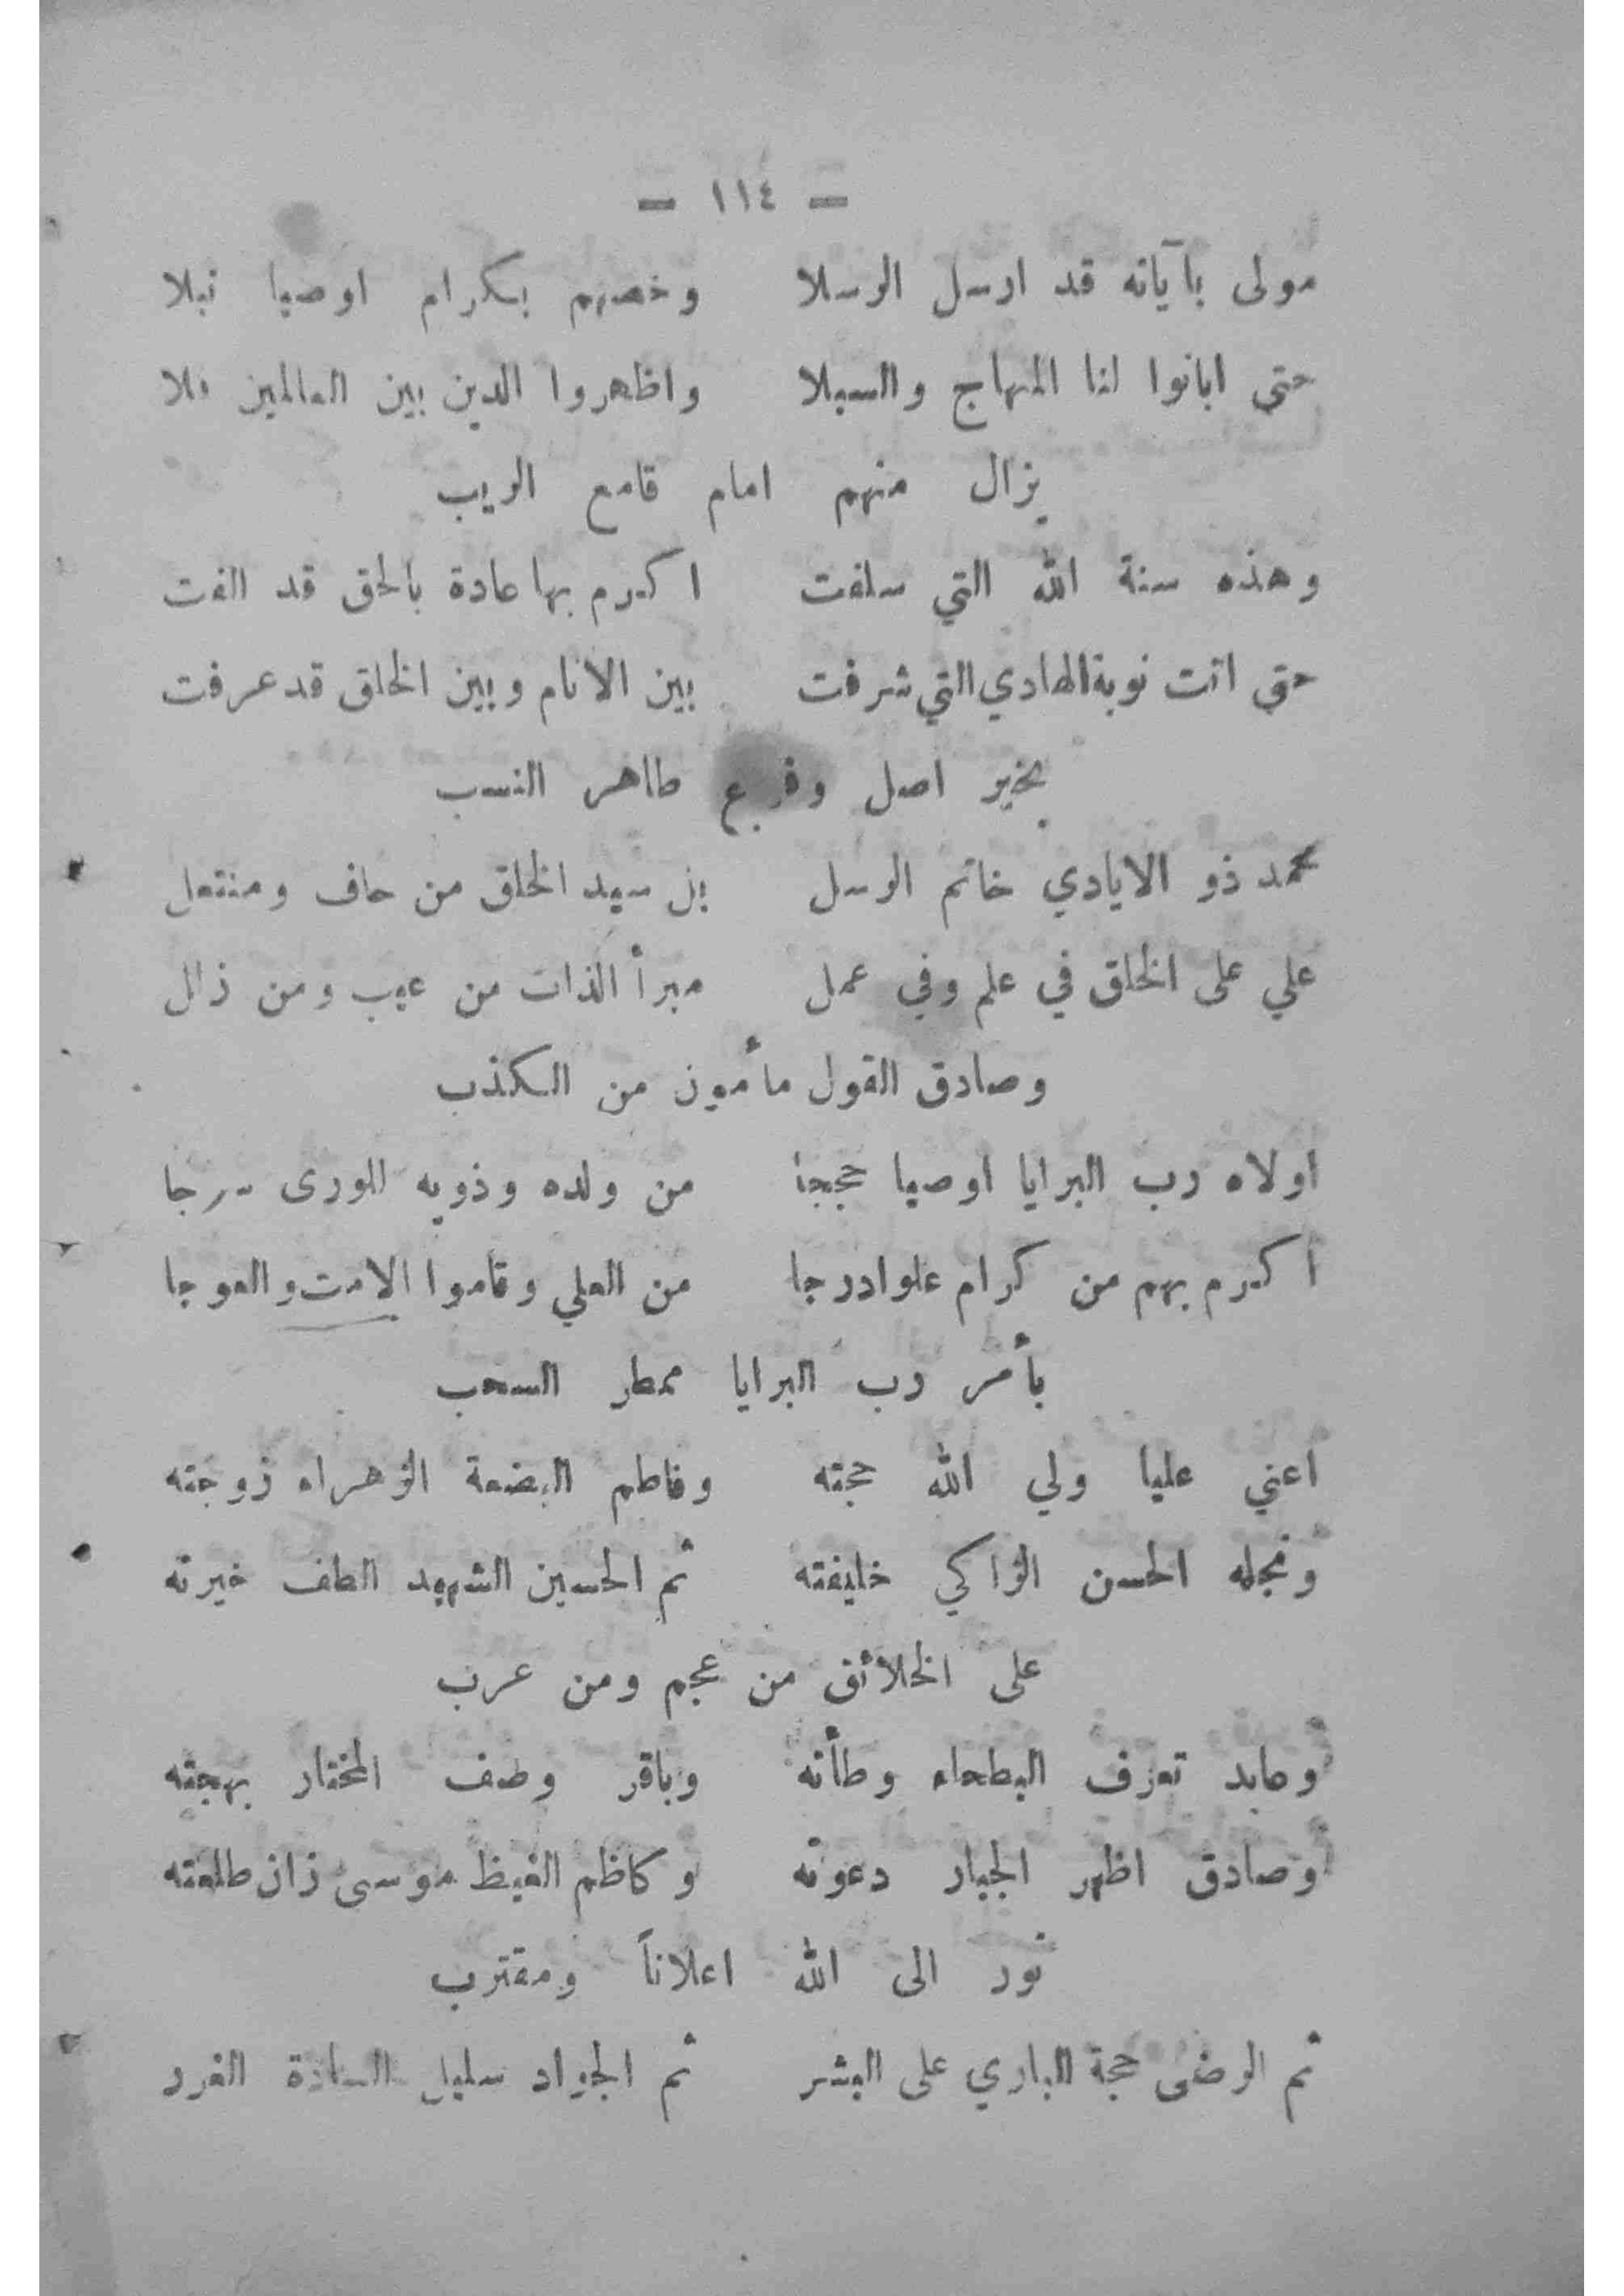 — ١١٤ —
مولى بآياته قد ارسل الرسلا وخصهم بكرام اوصيا نبلا
حتى ابانوا لنا المنهاج والسبلا واظهروا الدين بين العالمين فلا
يزال منهم امام قامع الريب
وهذه سنة الله التي سلفت اكرم بها عادة بالحق قد الفت
حتى اتت نوبة الهادي التي شرفت بين الانام وبين الخلق قد عرفت
بخير اصل وفرع طاهر النسب
محمد ذو الايادي خاتم الرسل بل سيد الخلق من حاف ومنتعل
علي على الخلق في علم وفي عمل مبرأ الذات من عيب ومن زلل
وصادق القول مأمون من الكذب
اولاه رب البرايا اوصيا حججا من ولده وذويه للورى سرجا
اكرم بهم من كرام علوا درجا من العلي وقاموا الامت والعوجا
بأمر رب البرايا ممطر السحب
اعني عليا ولي الله حجته وفاطم البضعة الزهراء زوجته
ونجله الحسن الزاكي خليفته ثم الحسين الشهيد الطف خيرته
على الخلائق من عجم ومن عرب
وعابد تعرف البطحاء وطأته وباقر وصف المختار بهجته
وصادق اظهر الجبار دعوته وكاظم الغيظ موسى زان طلعته
نور الى الله اعلاناً ومقترب
ثم الرضى حجة الباري على البشر ثم الجواد سليل السادة الغرر